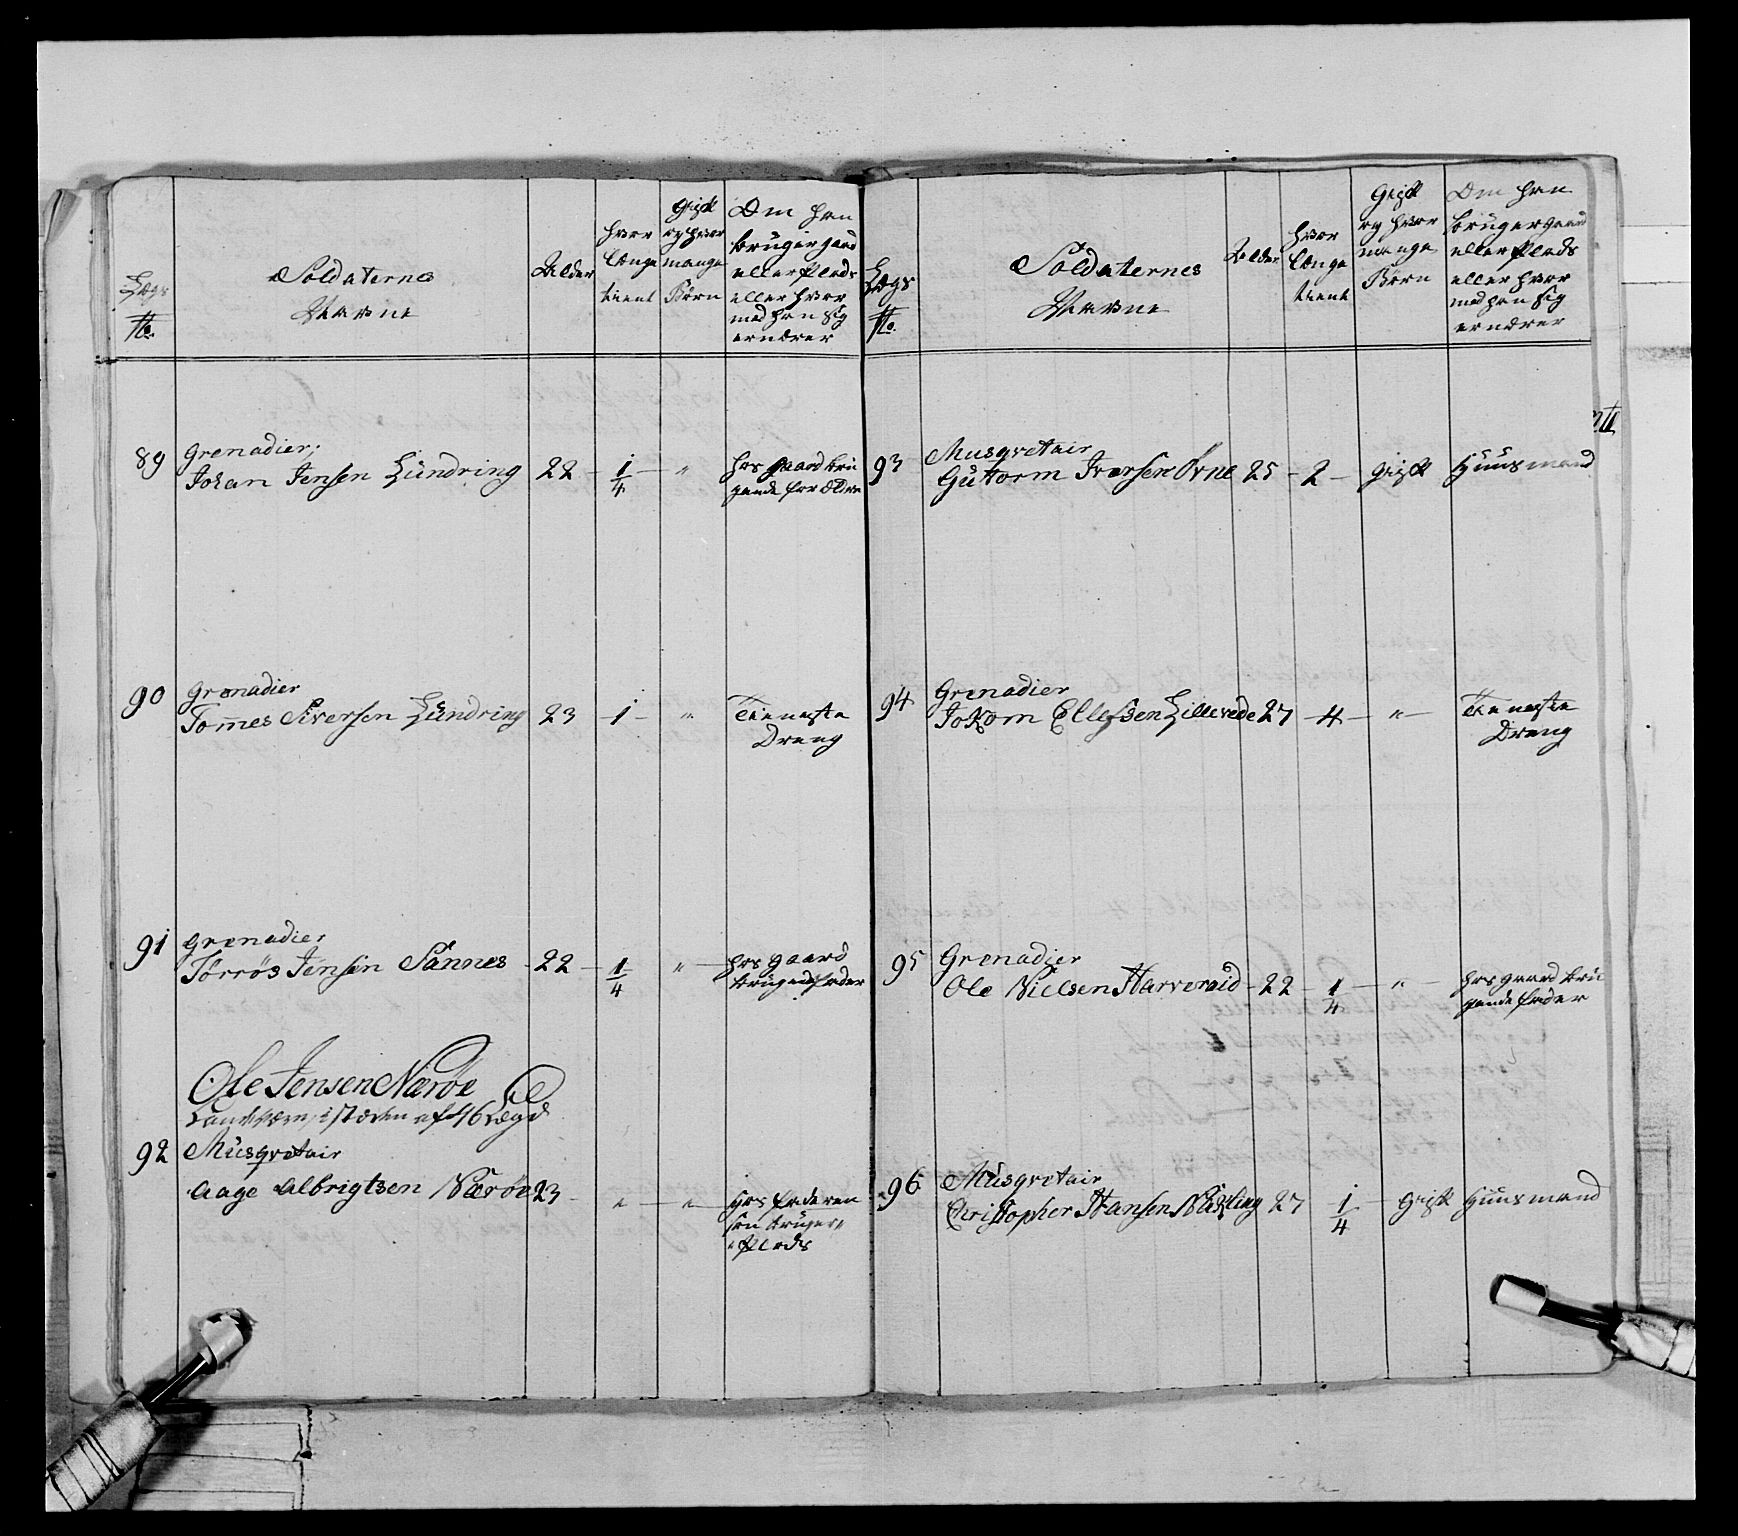 Lægs
No.
Soldaternes
Navne
Alder
hvor
længe
tient
Gift
og hvor
mange
Børn
Om han
bruger gaard
eller Plads
eller hvor
med han sig
ernærer
89
Grenadier,
Johan Jensen Lündring 22 - 1/4 - "
hos gaard brü
gende forældre
90
Grenadier
Tommes Siversen Lündring 23 - 1 - "
Tieneste
Dreng
91
Grenadier
Torrös Jensen Sannes - 22 - 1/4 - "
hos gaard
brugende fader
Ole Jensen Nærøe
Landværn, i stæden af 46 Lægd
92
Müsqvetair
Aage Albrigtsen Nærøe 23 - " - "
hos faderen
som bruger
Plads
Lægs
No.
Soldaternes
Navne
Alder
hvor
længe
tient
Gift
og hvor
mange
Børn
Om han
bruger gaard
eller Plads
eller hvor
med han sig
ernærer
93
Musqvetair
Güttorm Iversen Øvne 25 - 2 - Gift
Huusmand
94
Grenadier
Jokom Ellefsen Lillevede 27 - 4 - "
Tieneste
Dreng
95
Grenadier
Ole Nielsen Harveraid - 22 - 1/4 - "
hos gaard brü
gende fader
96
Müsqvetair
Christopher Hansen 27 1/4 - Gift
Huusmand